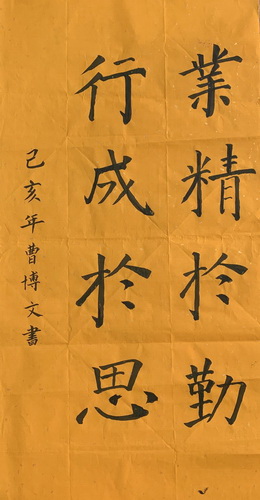 業精於勤
行成於思
己亥年曹博文書